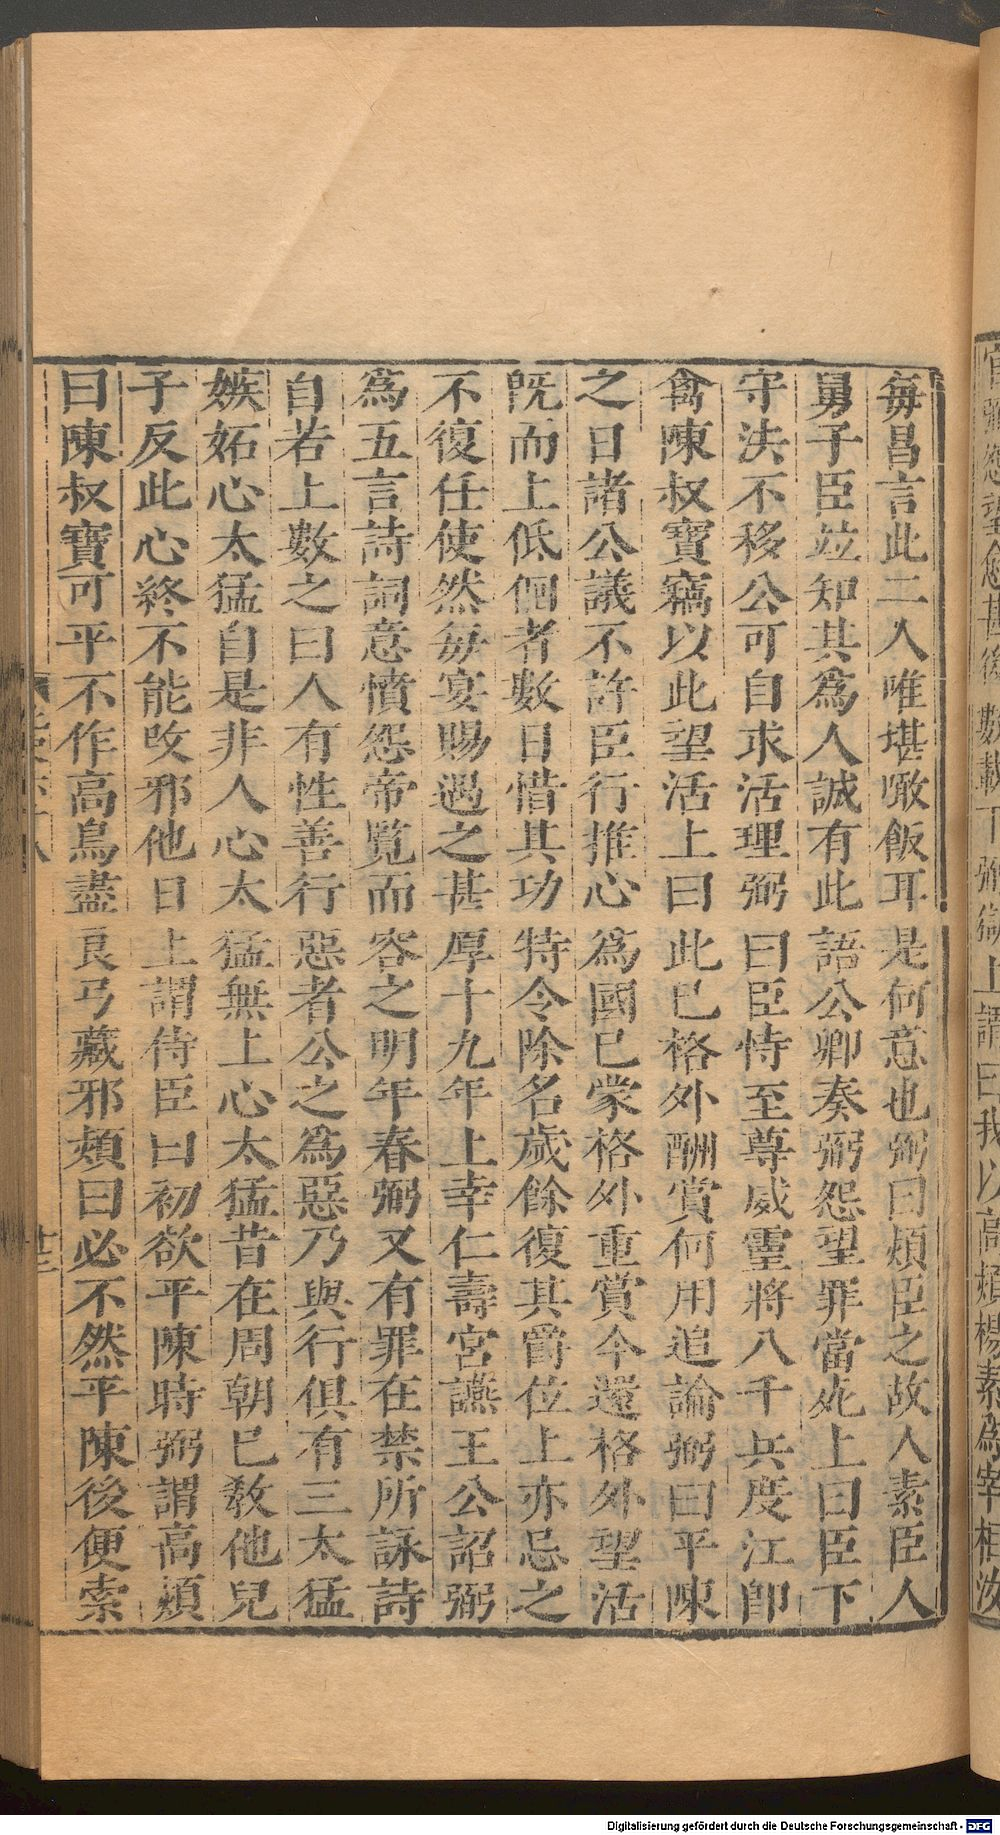 每昌言此二人唯堪噉飯耳是何意也弼曰熲臣之故人素臣人
舅子臣竝知其爲人誠有此語公卿奏弼怨望罪當死上曰臣下
守法不移公可自求活理弼曰臣恃至尊威靈將八千兵度江卽
禽陳叔寶竊以此望活上曰此已格外酬賞何用追論弼曰平陳
之日諸公議不許臣行推心爲國已蒙格外重賞今還格外望活
旣而上低佪者數日惜其功特令除名歲餘復其爵位上亦忌之
不復任使然每宴賜遇之甚厚十九年上幸仁壽宮讌王公詔弼
爲五言詩詞意憤怨帝覽而容之明年春弼又有罪在禁所詠詩
自若上數之曰人有性善行惡者公之爲惡乃與行俱有三太猛
嫉妬心太猛自是非人心太猛無上心太猛昔在周朝已敎他兒
子反此心終不能改邪他日上謂侍臣曰初欲平陳時弼謂高熲
曰陳叔寶可平不作高鳥盡良弓藏邪熲曰必不然平陳後便索
數載下弼獄上謂曰我以高熲楊素爲宰相汝
Digitalisierung gefördert durch die Deutsche Forschungsgemeinschaft - DFG